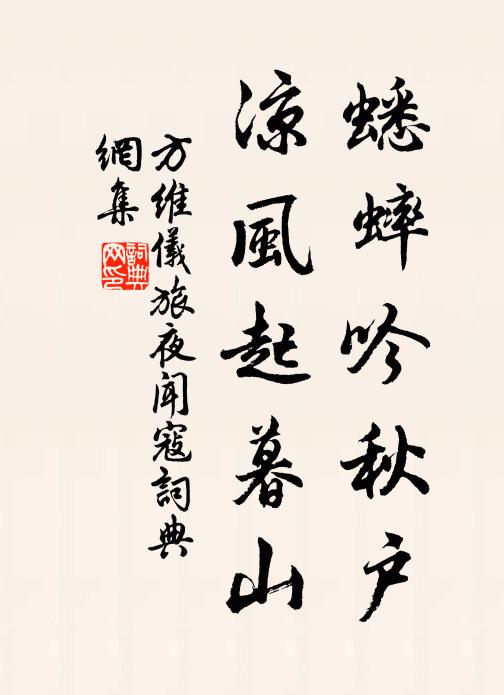 蟋蟀吟秋户
凉風起暮山
方維儀旅夜聞寇詞典
網集
詞典
网印